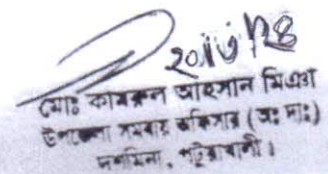 ২০/৬/২৪
মোঃ কামরুল আহসান মিঞা
উপজেলা সমবায় অফিসার (অঃ দাঃ)
দশমিনা, পটুয়াখালী।